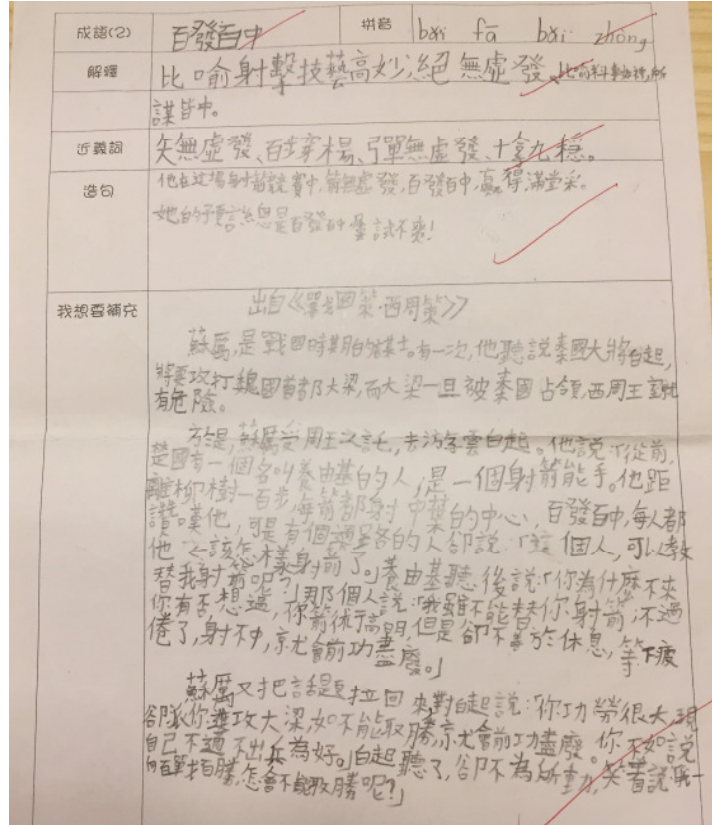 成語(2) 百發百中 拼音 bǎi fā bǎi zhòng
解釋 比喻射擊技藝高妙,絕無虛發、比喻料事如神,所
謀皆中。
近義詞 矢無虛發、百步穿楊、彈無虛發、十拿九穩。
造句 他在这場射箭競賽中,箭無虛發,百發百中,贏得滿堂采。
她的預言總是百發百中屢試不爽!
我想要補充 出自《戰國策·西周策》
蘇厲,是戰國時期的謀士。有一次,他聽說秦國大將白起,
將要攻打魏國首都大梁,而大梁一旦被秦國占領,西周王室就
有危險。
於是,蘇厲受周王之託,去游說白起。他說:「從前,
楚國有一個名叫養由基的人,是一個射箭能手。他距
離柳樹一百步,每箭都射中葉的中心,百發百中,每人都
讚嘆他,可是有個過路的人卻說:「這個人,可以教
他 該怎樣射箭了。」養由基聽後說:「你為什麼不來
替我射箭呢?」那個人說:「我雖不能替你射箭,不過
你有否想過,你箭術高明,但是卻不善於休息,等下疲
倦了,射不中,就會前功盡廢。」
蘇厲又把話題拉回來,對白起說:「你功勞很大,現
卻派你進攻大梁,如不能取勝,就會前功盡廢。你不如說
自己不適不出兵為好。」白起聽了,卻不為所動,笑著說:「我一
向百戰百勝,怎會不能取勝呢?」